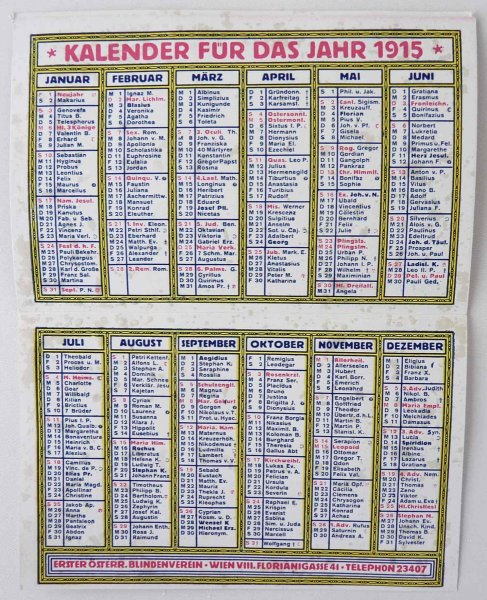 KALENDER FÜR DAS JAHR 1915
JANUAR
F 1 Neujahr
S 2 Makarius
S 3 Genovefa
M 4 Titus B.
D 5 Telesphorus
M 6 Hl. 3 Könige
D 7
F 8 Erhard
S 9 Julian M.
S 10
M 11 Hyginus
D 12 Probus
M 13 Leontius
D 14 Felix
F 15 Maurus
S 16 Marcellus
S 17 Nam. Jesu
M 18 Priska
D 19
M 20 Fab. u. Seb.
D 21 Agnes J.
F 22
S 23
S 24 Fest d. h. F.
M 25 Pauli Bekehr.
D 26
M 27
D 28 Karl d. Große
F 29 Franz Sal.
S 30 Martina
S 31 Sept.
FEBRUAR
M 1 Ignaz M.
D 2 Mar. Lichtm.
M 3 Blasius
D 4 Veronika
F 5 Agatha
S 6 Dorothea
S 7 Sex.
M 8 Johann v. M.
D 9 Apollonia
M 10 Scholastika
D 11 Euphrosine
F 12 Eulalia
S 13 Jordan
S 14 Quinqu.
M 15 Faustin
D 16 Juliana
M 17 Aschermittw.
D 18
F 19 Konrad
S 20 Eleuther.
S 21 1. Inv.
M 22 Petri Stuhlf.
D 23 Eberhard
M 24 Matth. Ev.
D 25 Walpurga
F 26 Alexander
S 27 Leander
S 28 2. Rem. Rom.
MÄRZ
M 1 Albinus
D 2 Simplizius
M 3 Kunigunde
D 4 Kasimir
F 5 Friedrich
S 6
S 7 3. Ocul. Th.
M 8 Joh. v. G.
D 9 Franziska
M 10 40 Märtyrer
D 11 Konstantin
F 12 Gregor Papst
S 13 Rosina
S 14 4. Laet. Math.
M 15 Longinus
D 16 Heribert
M 17 Patrizius
D 18 Eduard
F 19 Josef
S 20 Niketas
S 21 5. Jud. Ben.
M 22 Oktavian
D 23 Viktoria
M 24 Gabriel Erz.
D 25 Maria Verk.
F 26
S 27
S 28 6. Palms.
M 29 Cyrillus
D 30 Quirinus
M 31 Amos Pr.
APRIL
D 1 Gründonn.
F 2 Karfreitag
S 3 Karsamst.
S 4 Ostersonnt.
M 5 Ostermont.
D 6 Sixtus I. P.
M 7 Hermann
D 8 Dionysius
F 9 Maria El.
S 10 Ezechiel
S 11 Quas. Leo P.
M 12 Julius
D 13 Hermenegild
M 14 Tiburtius
D 15 Anastasia
F 16 Turibius
S 17 Rudolf
S 18 Mis. Werner
M 19 Kreszenz
D 20 Sulpitius
M 21 Anselm
D 22 Sot. u. Caj.
F 23 Adalbert
S 24 Georg
S 25 Jub. Mark. E.
M 26 Kletus
D 27
M 28 Vitalis
D 29 Peter M.
F 30 Katharina
MAI
S 1 Phil. u. Jak.
S 2 Cant. Sigism.
M 3
D 4 Florian
M 5 Pius V.
D 6 Joh. v. Pf.
F 7 Gisela
S 8 Michael
S 9 Rog. Gregor
M 10 Gordian
D 11 Gangolph
M 12 Pankraz
D 13 Chr. Himmelf.
F 14 Bonifaz
S 15 Sophie
S 16 Ex. Joh. v. N.
M 17 Ubald
D 18 Vinantius
M 19 Cölestin
D 20 Bernhard
F 21 Felix
S 22 Julie
S 23 Pfingsts.
M 24 Pfingstm.
D 25 Urban
M 26 Philipp N.
D 27 Johann P.
F 28 Wilhelm
S 29 Maximilian
S 30 Hl. Dreifalt.
M 31 Angela
JUNI
D 1 Gratiana
M 2 Erasmus
D 3 Fronleichn.
F 4 Quirinus
S 5 Bonifazius
S 6 Norbert
M 7 Lukretia
D 8 Medard
M 9 Primus u. Fel.
D 10 Margarethe
F 11 Herz Jesuf.
S 12 Johann F.
S 13 Anton v. P.
M 14 Basilius
D 15 Vitus
M 16 Benno B.
D 17 Adolf
F 18 Gervasius
S 19 Juliana F.
S 20 Silverius
M 21 Alois v. G.
D 22 Paulinus
M 23 Edeltrud
D 24 Joh. d. Täuf.
F 25 Prosper
S 26 Joh. u. Paul
S 27 Ladisl. K.
M 28 Leo II. P.
D 29 Pet. u. Paul
M 30 Pauli Ged.
JULI
D 1 Theobald
F 2
S 3 Heliodor
S 4
M 5 Charlotte
D 6
M 7 Willibald
D 8 Kilian
F 9
S 10 7 Brüder
S 11 Pius I. P.
M 12
D 13 Margaretha
M 14 Bonaventura
D 15 Heinrich
F 16
S 17 Alexius
S 18
M 19
D 20
M 21 Daniel
D 22 Maria Magd.
F 23
S 24 Christine
S 25 Jakob Ap.
M 26 Anna
D 27 Pantaleon
M 28
D 29 Martha
F 30 Abdon
S 31 Ignaz
AUGUST
S 1 Petri Kettenf.
M 2
D 3 Stephan A.
M 4 Dominik
D 5
F 6 Verklär. Christ.
S 7 Kajetan
S 8 Cyriak
M 9 Roman M.
D 10 Laurenz
M 11 Susanna
D 12 Klara J.
F 13 Hippolyt
S 14 Eusebius
S 15 Maria Him.
M 16 Rochus
D 17 Liberatus
M 18 Helena K.
D 19 Ludwig
F 20 Stephan K.
S 21 Johann Franz.
S 22 Timotheus
M 23 Philipp B.
D 24 Bartholom.
M 25 Ludwig K.
D 26 Zephyrin
F 27 Josef Kal.
S 28 Augustinus
S 29 Johann Enth.
M 30
D 31 Raimund
SEPTEMBER
M 1 Aegidius
D 2 Stephan K.
F 3 Seraphina
S 4 Rosalia
S 5
M 6 Magnus
D 7 Regina
M 8 Mar. Geburt
D 9 Gorgon
F 10 Nikolaus v. T.
S 11
S 12 Maria Nam.
M 13 Maternus
D 14
M 15 Nikodemus
D 16 Ludmilla
F 17 Lambert
S 18 Thomas v. V.
S 19
M 20 Eustach
D 21 Matth. Ev.
M 22 Mauriz
D 23 Thekla J.
F 24 Rupert
S 25
S 26 Cyprian
M 27
D 28 Wenzel K.
M 29 Michael Erz.
D 30 Hieronym.
OKTOBER
F 1 Remigius
S 2 Leodegar
S 3 Rosenkrzf.
M 4 Franz Ser.
D 5 Placidus
M 6 Bruno
D 7 Justina
F 8 Brigitta
S 9 Dionysius
S 10 Franz Borgia
M 11 Nikasius
D 12 Maximil. B.
M 13 Koloman M.
D 14 Burghard
F 15 Theresia
S 16 Gallus Abt
S 17 Kirchweihf.
M 18 Lukas Ev.
D 19 Petrus v. A.
M 20 Felician
D 21 Ursula
F 22 Kordula
S 23 Severin
S 24 Raphael E.
M 25 Krispin
D 26 Evarist
M 27 Sabina
D 28 Sim. u. Juda
F 29 Narcissus
S 30 Marcell
S 31 Wolfgang
NOVEMBER
M 1 Allerheil.
D 2 Allerseelen
M 3 Hubert
D 4 Karl Borr.
F 5 Emerich
S 6 Leonhard
S 7 Engelbert
M 8 Gottfried
D 9 Theodor
M 10
D 11 Martin B.
F 12 Martin P.
S 13
S 14 Serapion
M 15 Leopold
D 16 Ottomar
M 17 Gregor
D 18 Odon
F 19 Elisabeth
S 20 Felix Val.
S 21 Mariä Opf.
M 22 Cäcilia
D 23 Clemens
M 24 Chrysogon.
D 25 Katharina
F 26 Konrad
S 27 Virgilius
S 28 1. Adv. Rufus
M 29 Saturnin
D 30 Andreas A.
DEZEMBER
M 1 Eligius
D 2 Bibiana
F 3 Franz X.
S 4 Barbara
S 5 2. Adv.
M 6 Nikol. B.
D 7 Ambros
M 8 Maria Empf.
D 9 Leokadia
F 10 Melchiades
S 11 Damasus
S 12 3. Adv.
M 13 Lucia
D 14 Spiridion
M 15
D 16 Adelheid
F 17
S 18
S 19 4. Adv. Nem.
M 20
D 21 Thomas A.
M 22
D 23 Viktor
F 24 Adam u. Eva
S 25 Hl. Christfest
S 26 Stephan M.
M 27 Johann Ev.
D 28 Unsch. Kind.
M 29 Thomas B.
D 30 David K.
F 31 Sylvester
ERSTER ÖSTERR. BLINDENVEREIN • WIEN VIII. FLORIANIGASSE 41 • TELEPHON 23407